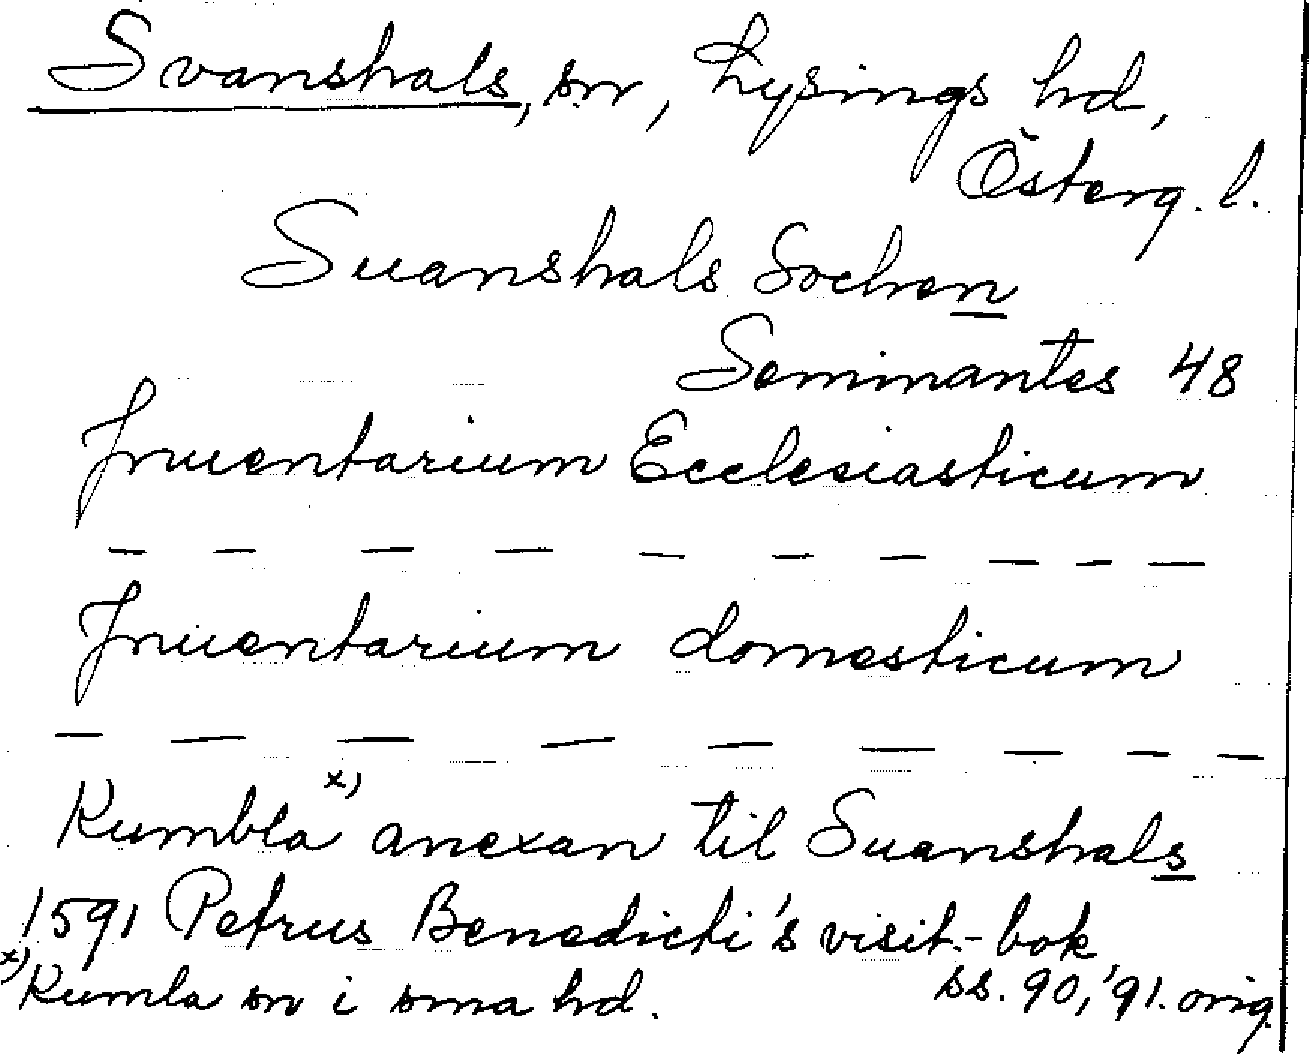 Svanshals, sn, Lysings hd,
Österg. l.
Suanshals Sochen
Seminantes 48
Inuentarium Ecclesiasticum
— — — — — — — — — —
Inuentarium domesticum
— — — — — — — — —
Kumbla x) anexan til Suanshals
1591 Petrus Benedicti's visit.-bok
ss. 90, '91. orig.
x) Kumla sn i sma hd.